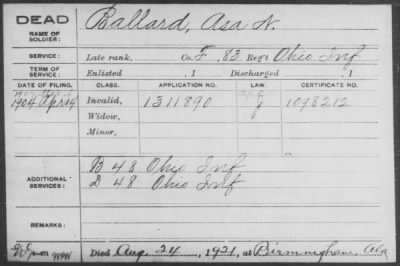 DEAD
NAME OF SOLDIER: Ballard, Asa N.
SERVICE: Late rank, Co. F, 83 Reg't Ohio Inf
TERM OF SERVICE: Enlisted , 1 Discharged , 1
DATE OF FILING. CLASS. APPLICATION NO. LAW. CERTIFICATE NO.
1904 Apr 14 Invalid, 1311890 J 1098212
Widow,
Minor,
ADDITIONAL SERVICES: B 48 Ohio Inf
D 48 Ohio Inf
REMARKS:
Died Aug. 24, 1921, at Birmingham, Ala